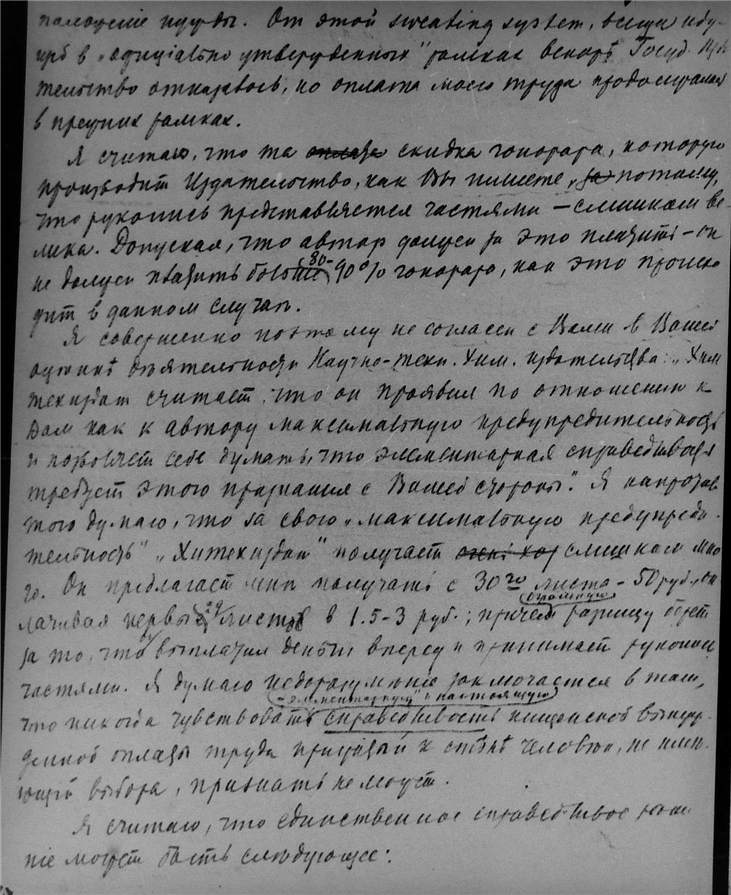 положение нужды. От этой sweating system, всегда
въ „оффиціально утвержденных" рамках вскорѣ Госуд.
тельство отказалось, но оплата моего труда продолжалась
в прежних рамках.
Я считаю, что та скидка гонорара, которую
производит Издательство, как Вы пишете, потому,
что рукопись представляется частями – слишком ве-
лика. Допуская, что автор должен за это платить – он
не должен платить больше 80-90% гонорара, как это происхо
дит в данном случаѣ.
Я совершенно поэтому не согласен с Вами в Вашей
оцѣнкѣ дѣятельности Научно-техн. Хим. издательства: „Хим
техиздат считает, что он проявил по отношению к
Вам как к автору максимальную предупредительность
и позволяет себе думать, что элементарная справедливость
требует этого признания с Вашей стороны". Я напротив
того думаю, что за свою „максимальную предупреди-
тельность" „Химтехиздат" получает слишком мно
го. Он предлагает мнѣ получать с 30го листа – 50 руб.,
лачивая первые 29 листов в 1.5-3 руб.; причем огромную разницу берет
за то, что выплатил деньги вперед и принимает рукопись
частями. Я думаю недоразумѣніе заключается в том,
что никогда чувствовать „элементарную" и настоящую справедливость нищенской вынуж-
денной оплаты труда прижатый к стѣнѣ человѣк, не имѣ-
ющій выбора, признать не может.
Я считаю, что единственное справедливое рѣше
ніе может быть слѣдующее: